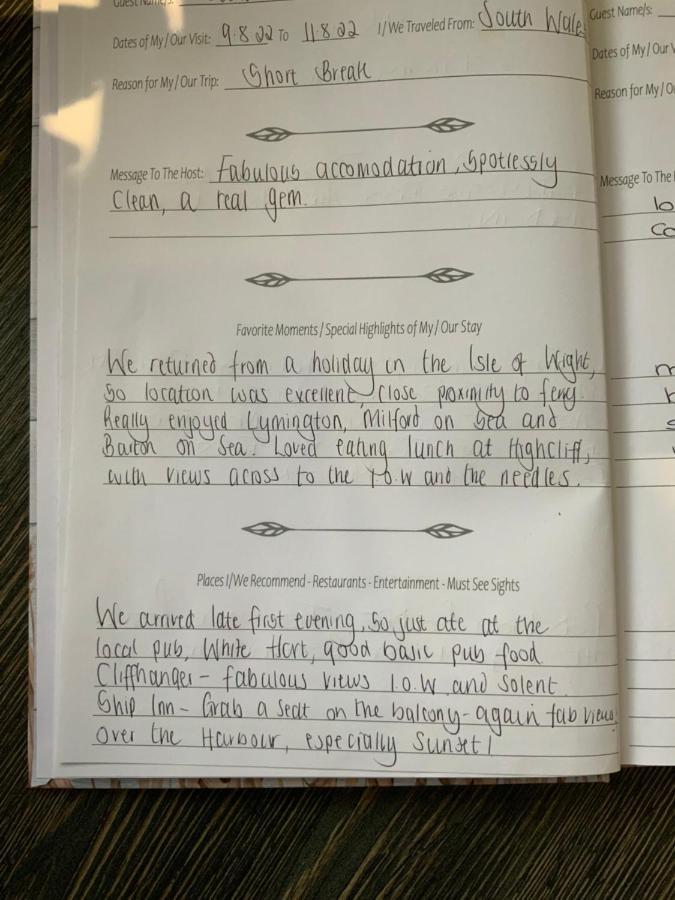 Guest Name/s:
Dates of My / Our Visit: 9.8.22 To 11.8.22 I / We Traveled From: South Wales
Reason for My / Our Trip: Short Break
Message To The Host: Fabulous accomodation, Spotlessly
Clean, a real gem.
Favorite Moments / Special Highlights of My / Our Stay
We returned from a holiday in the Isle of Wight,
So location was excellent, close proximity to ferry.
Really enjoyed Lymington, Milford on Sea and
Barton on Sea. Loved eating lunch at Highcliff,
with views across to the I.O.W and the needles.
Places I/We Recommend - Restaurants - Entertainment - Must See Sights
We arrived late first evening, So just ate at the
local pub, White Hart, good basic pub food
Cliffhanger - fabulous views I.O.W and Solent
Ship Inn - Grab a seat on the balcony - again fab views
over the Harbour, especially Sunset!
Guest Name/s:
Dates of My / Our
Reason for My / O
Message To The